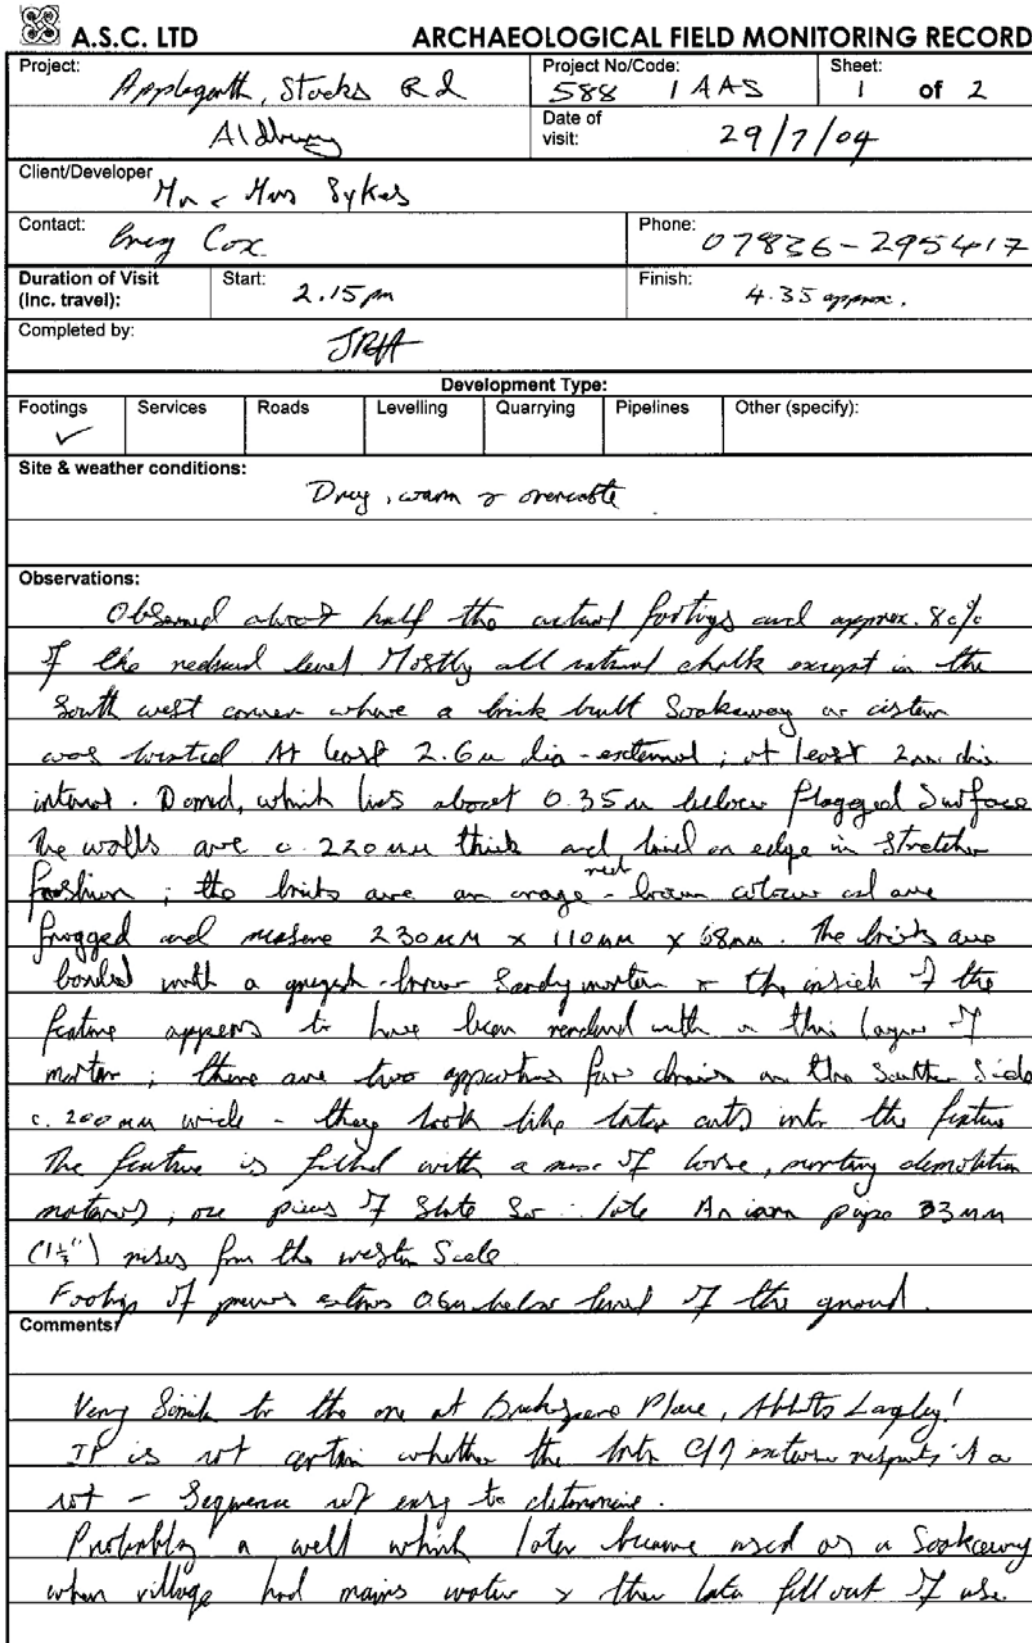 A.S.C. LTD ARCHAEOLOGICAL FIELD MONITORING RECORD
Project: Project No/Code: Sheet:
Applegarth, Stocks Rd 588 / AAS 1 of 2
Aldbury Date of visit: 29/7/04
Client/Developer Mr & Mrs Sykes
Contact: Greg Cox Phone: 07836-295417
Duration of Visit (Inc. travel): Start: 2.15pm Finish: 4.35 approx.
Completed by: JRH
Development Type:
Footings Services Roads Levelling Quarrying Pipelines Other (specify):
✓
Site & weather conditions:
Dry, warm & overcast
Observations:
Observed about half the actual footings and approx. 80%
of the reduced level Mostly all natural chalk except in the
South west corner where a brick built Soakaway or cistern
was located At least 2.6m dia - external ; at least 2m dia
internal. Domed, which lies about 0.35m below flagged Surface
The walls are c. 220mm thick and laid on edge in Stretcher
fashion ; the bricks are an orage - red brown colour and are
frogged and measure 230mm x 110mm x 68mm. The bricks are
bonded with a greyish-brown Sandy mortar & the inside of the
feature appears to have been rendered with a thin layer of
mortar ; there are two apparent drains on the Southern Side
c. 200mm wide - they look like later cuts into the feature
The feature is filled with a mix of loose, demolition
material, pieces of Slate So late An iron pipe 33mm
rises from the western Side
Footings of extend 0.6m below level of the ground.
Comments:
Very Similar to the one at Place, Abbots Langley!
It is not certain whether the respects it or
not - Sequence not easy to determine.
Probably a well which later became used as a Soakaway
when village had mains water & then later fell out of use.